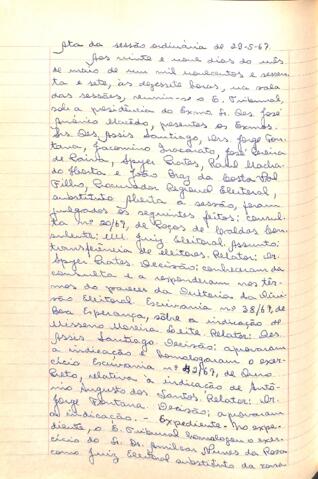 Ata da sessão ordinária de 29-5-67.
Aos vinte e nove dias do mês
de maio de um mil novecentos e sessen-
ta e sete, às dezessete horas, na sala
das sessões, reuniu-se o E. Tribunal,
sob a presidência do Exmo Sr. Des. José
Américo Macêdo, presentes os Exmos.
Srs. Des. Assis Santiago, Drs. Jorge Fon-
tana, Jacomino Inacarato, José Pereira
de Paiva, Spyer Prates, Paulo Macha-
do Horta e João Braz da Costa Val
Filho, Procurador Regional Eleitoral,
substituto. Aberta a sessão, foram
julgados os seguintes feitos: consul-
ta nº 20/67, de Poços de Caldas. Con-
sulente: MM. Juiz Eleitoral. Assunto:
transferência de eleitores. Relator: Dr.
Spyer Prates. Decisão: conheceram da
consulta e a responderam nos têr-
mos do parecer da Auditoria da Divi-
são Eleitoral. Escrivania nº 38/67, de
Boa Esperança, sôbre a indicação de
Misseno Moreira Leite. Relator: Des.
Assis Santiago. Decisão: aprovaram
a indicação e homologaram o exer-
cício. Escrivania nº 42/67, de Ouro
Preto, relativa à indicação de Antô-
nio Augusto dos Santos. Relator: Dr.
Jorge Fontana. Decisão: aprovaram
a indicação. - Expediente: No expe-
diente, o E. Tribunal homologou o exer-
cício do Sr. Dr. Amilcar Nunes da Rosa
como Juiz Eleitoral substituto da zona